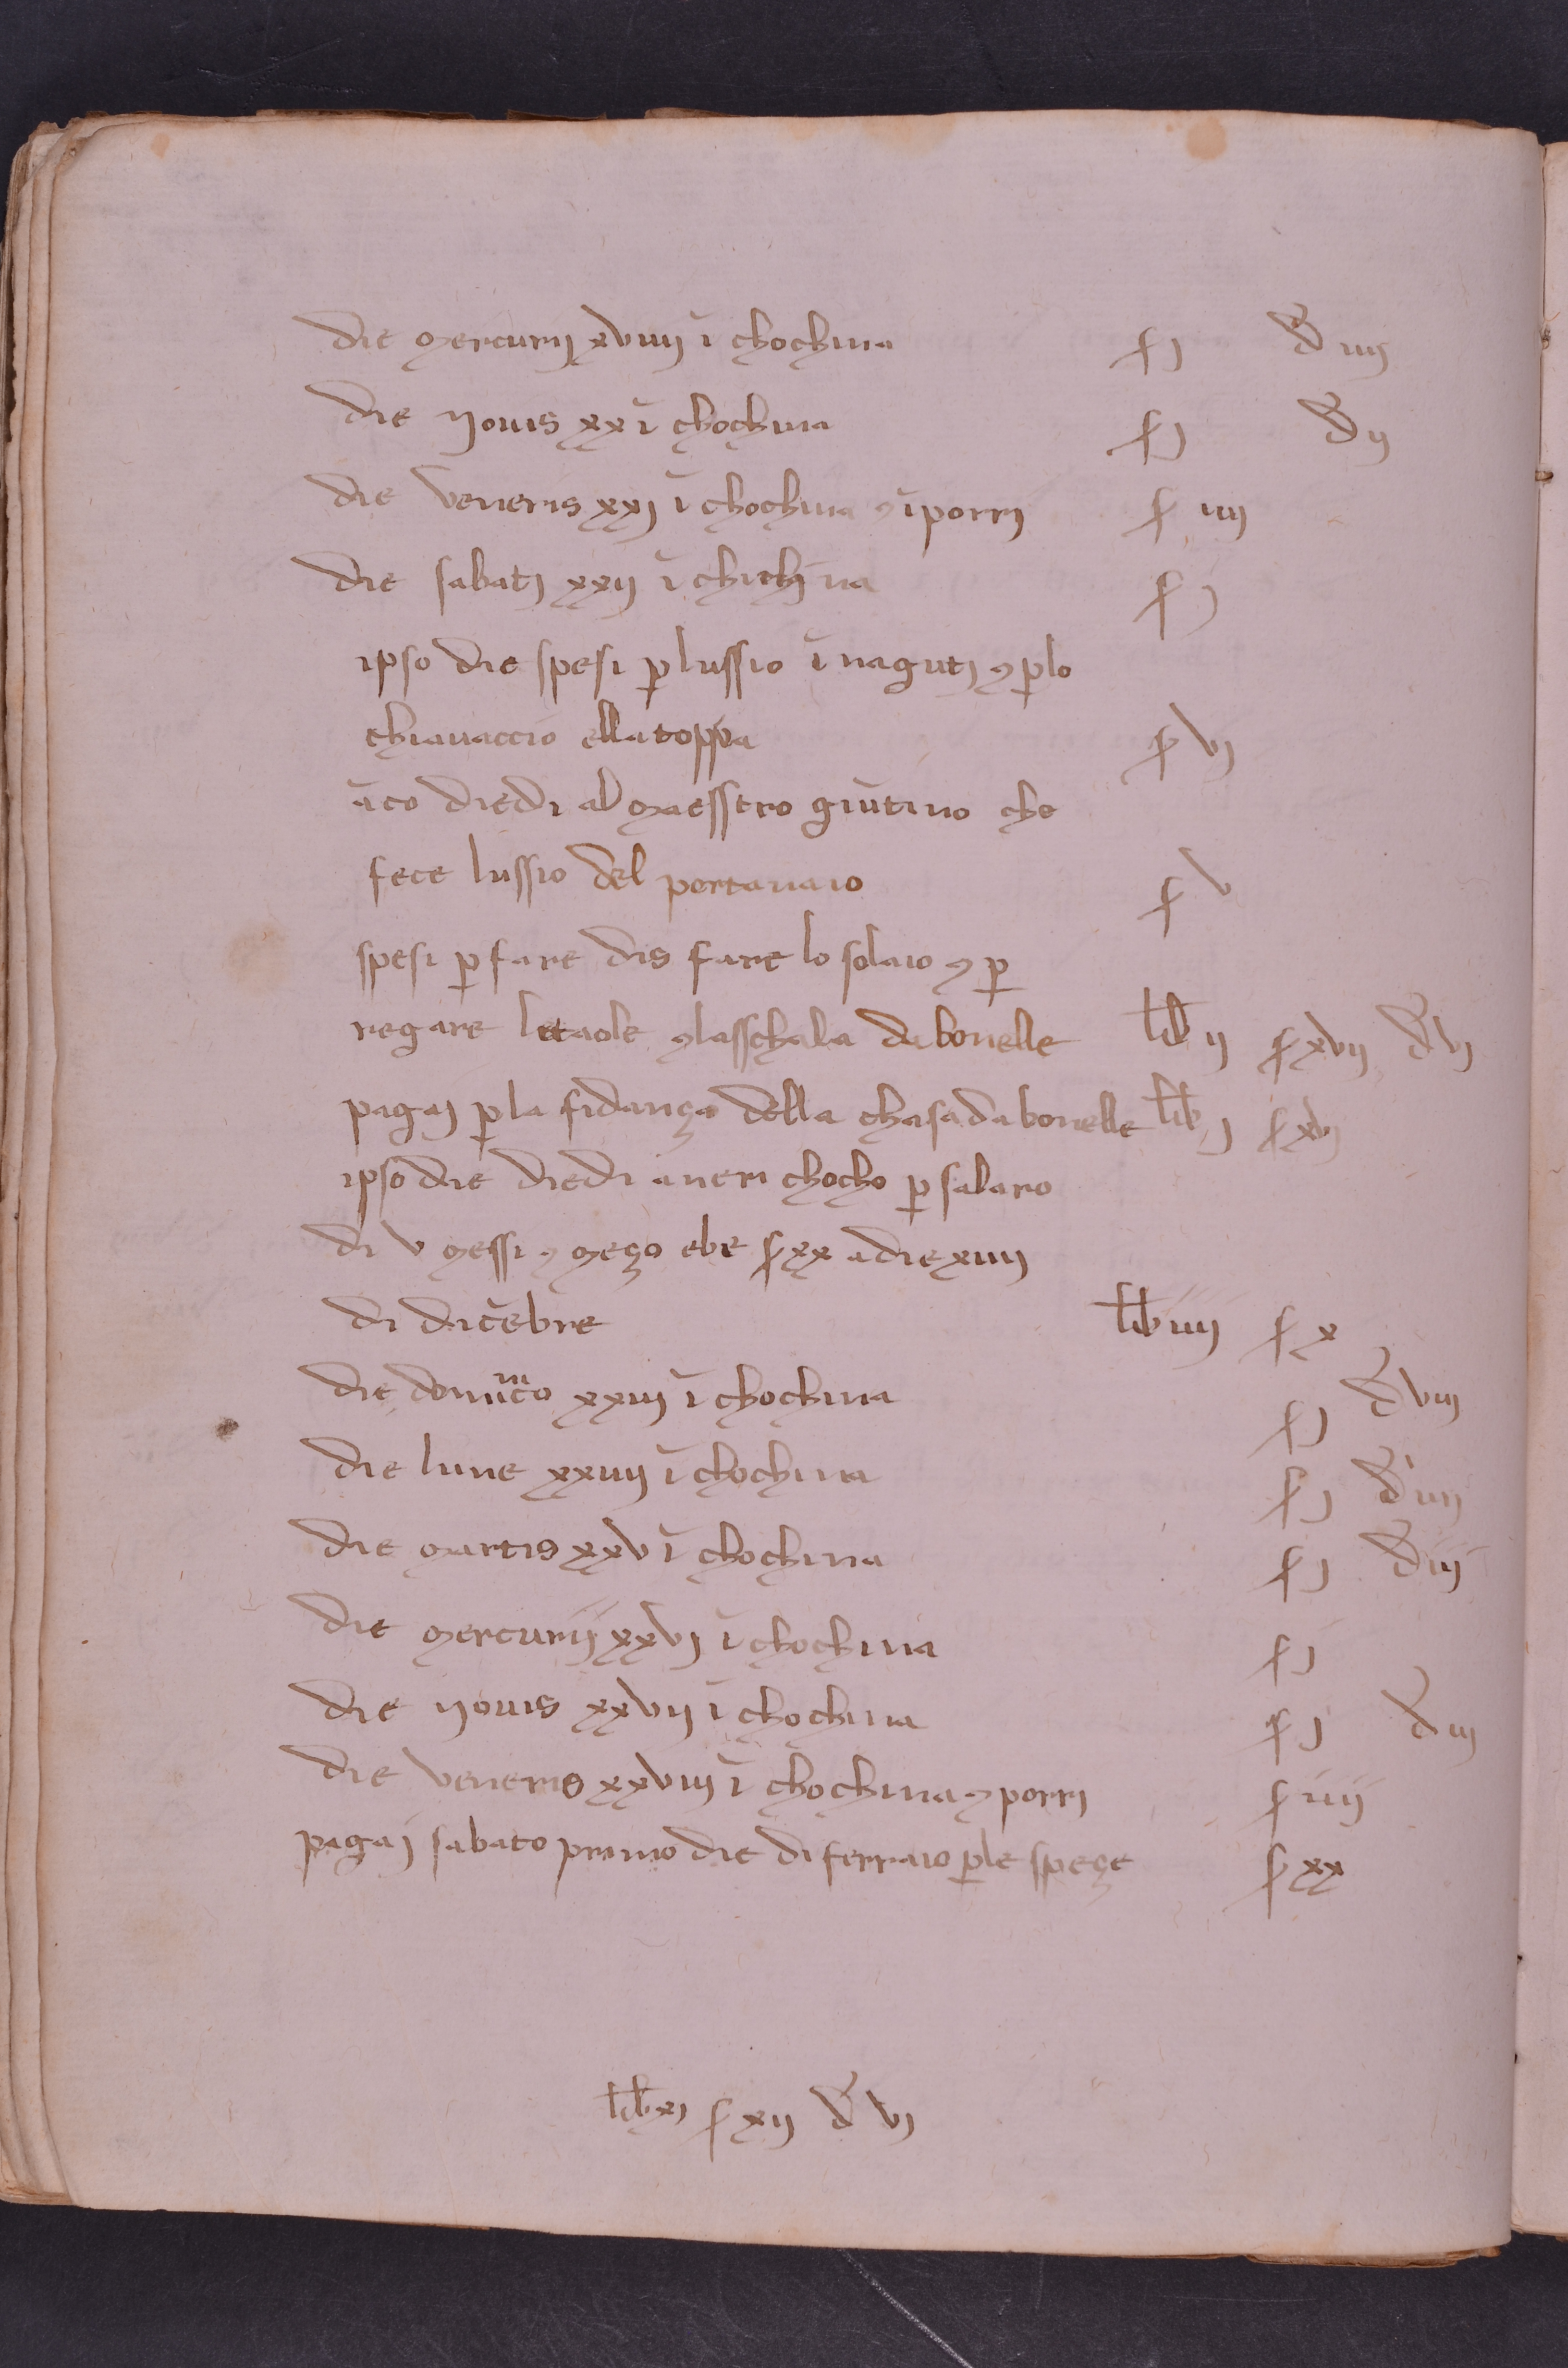 die mercurij xviiij ĩ chochina ſ j đ iiij
die Jouis xx ĩ chochina ſ j đ ij
die veneris xxj ĩ chochina ⁊ ĩ porrj ſ iiij
die sabatj xxij ĩ chichina ſ j
ipso die spesi ꝑ lussio ĩ nagutj ⁊ ꝑ lo
chiauaccio ella toppa ſ vj
ãco diedi al maesstro giũtino che
fece lussio del portanaio ſ v
spesi ꝑ fare dis fare lo solaio ⁊ ꝑ
regare le taole ⁊ lasschala da bonelle lib ij ſ xvij đ vj
pagaj ꝑ la fidança della chasa da bonelle lib j ſ xvj
ipso die diedi a neri chocho ꝑ salaro
di v messi ⁊ meço ebe ſ xx a die xiiij
di dicẽbre lib iiij ſ x
die dominico xxiij ĩ chochina ſ j đ viij
die lune xxiiij ĩ chochina ſ j đ iiij
die martis xxv ĩ chochina ſ j đ iij
die mercurij xxvj ĩ chochina ſ j
die Jouis xxvij ĩ chochina ſ j đ iij
die veneris xxviij ĩ chochina ⁊ porrj ſ iiij
pagaj sabato primo die di ferraio ꝑ le speçe ſ xx
lib xj ſ xij đ vj